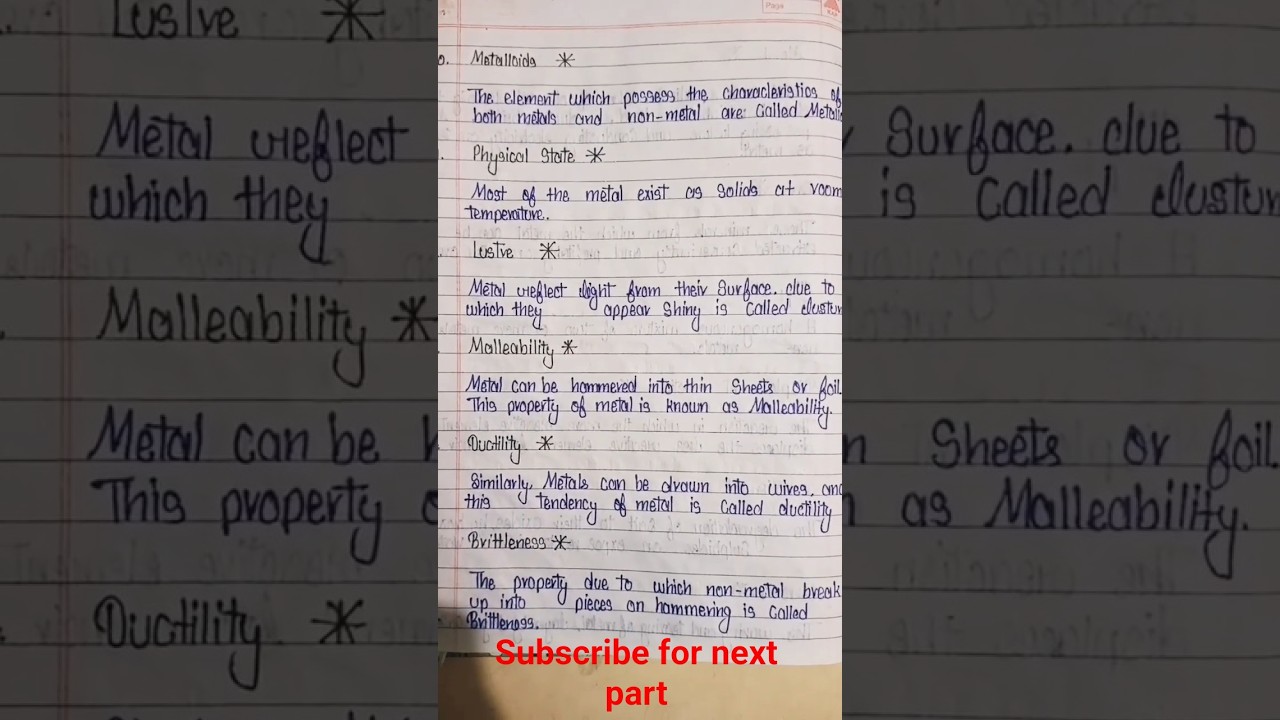 Page
Metalloids *
The element which possess the characteristics of
both metals and non-metal are Called Metall
Physical State *
Most of the metal exist as Solids at room
temperature.
Lustre *
Metal reflect light from their Surface. due to
which they appear Shiny is Called lustur
Malleability *
Metal can be hammered into thin Sheets or foil.
This property of metal is known as Malleability.
Ductility *
Similarly, Metals can be drawn into wires. and
this tendency of metal is Called ductility
Brittleness *
The property due to which non-metal break
up into pieces on hammering is Called
Brittleness.
Subscribe for next
part
Lustre *
Metal reflect
Surface. due to
which they
is Called lustur
Malleability *
Metal can be
Sheets or foil.
This property
as Malleability.
Ductility *